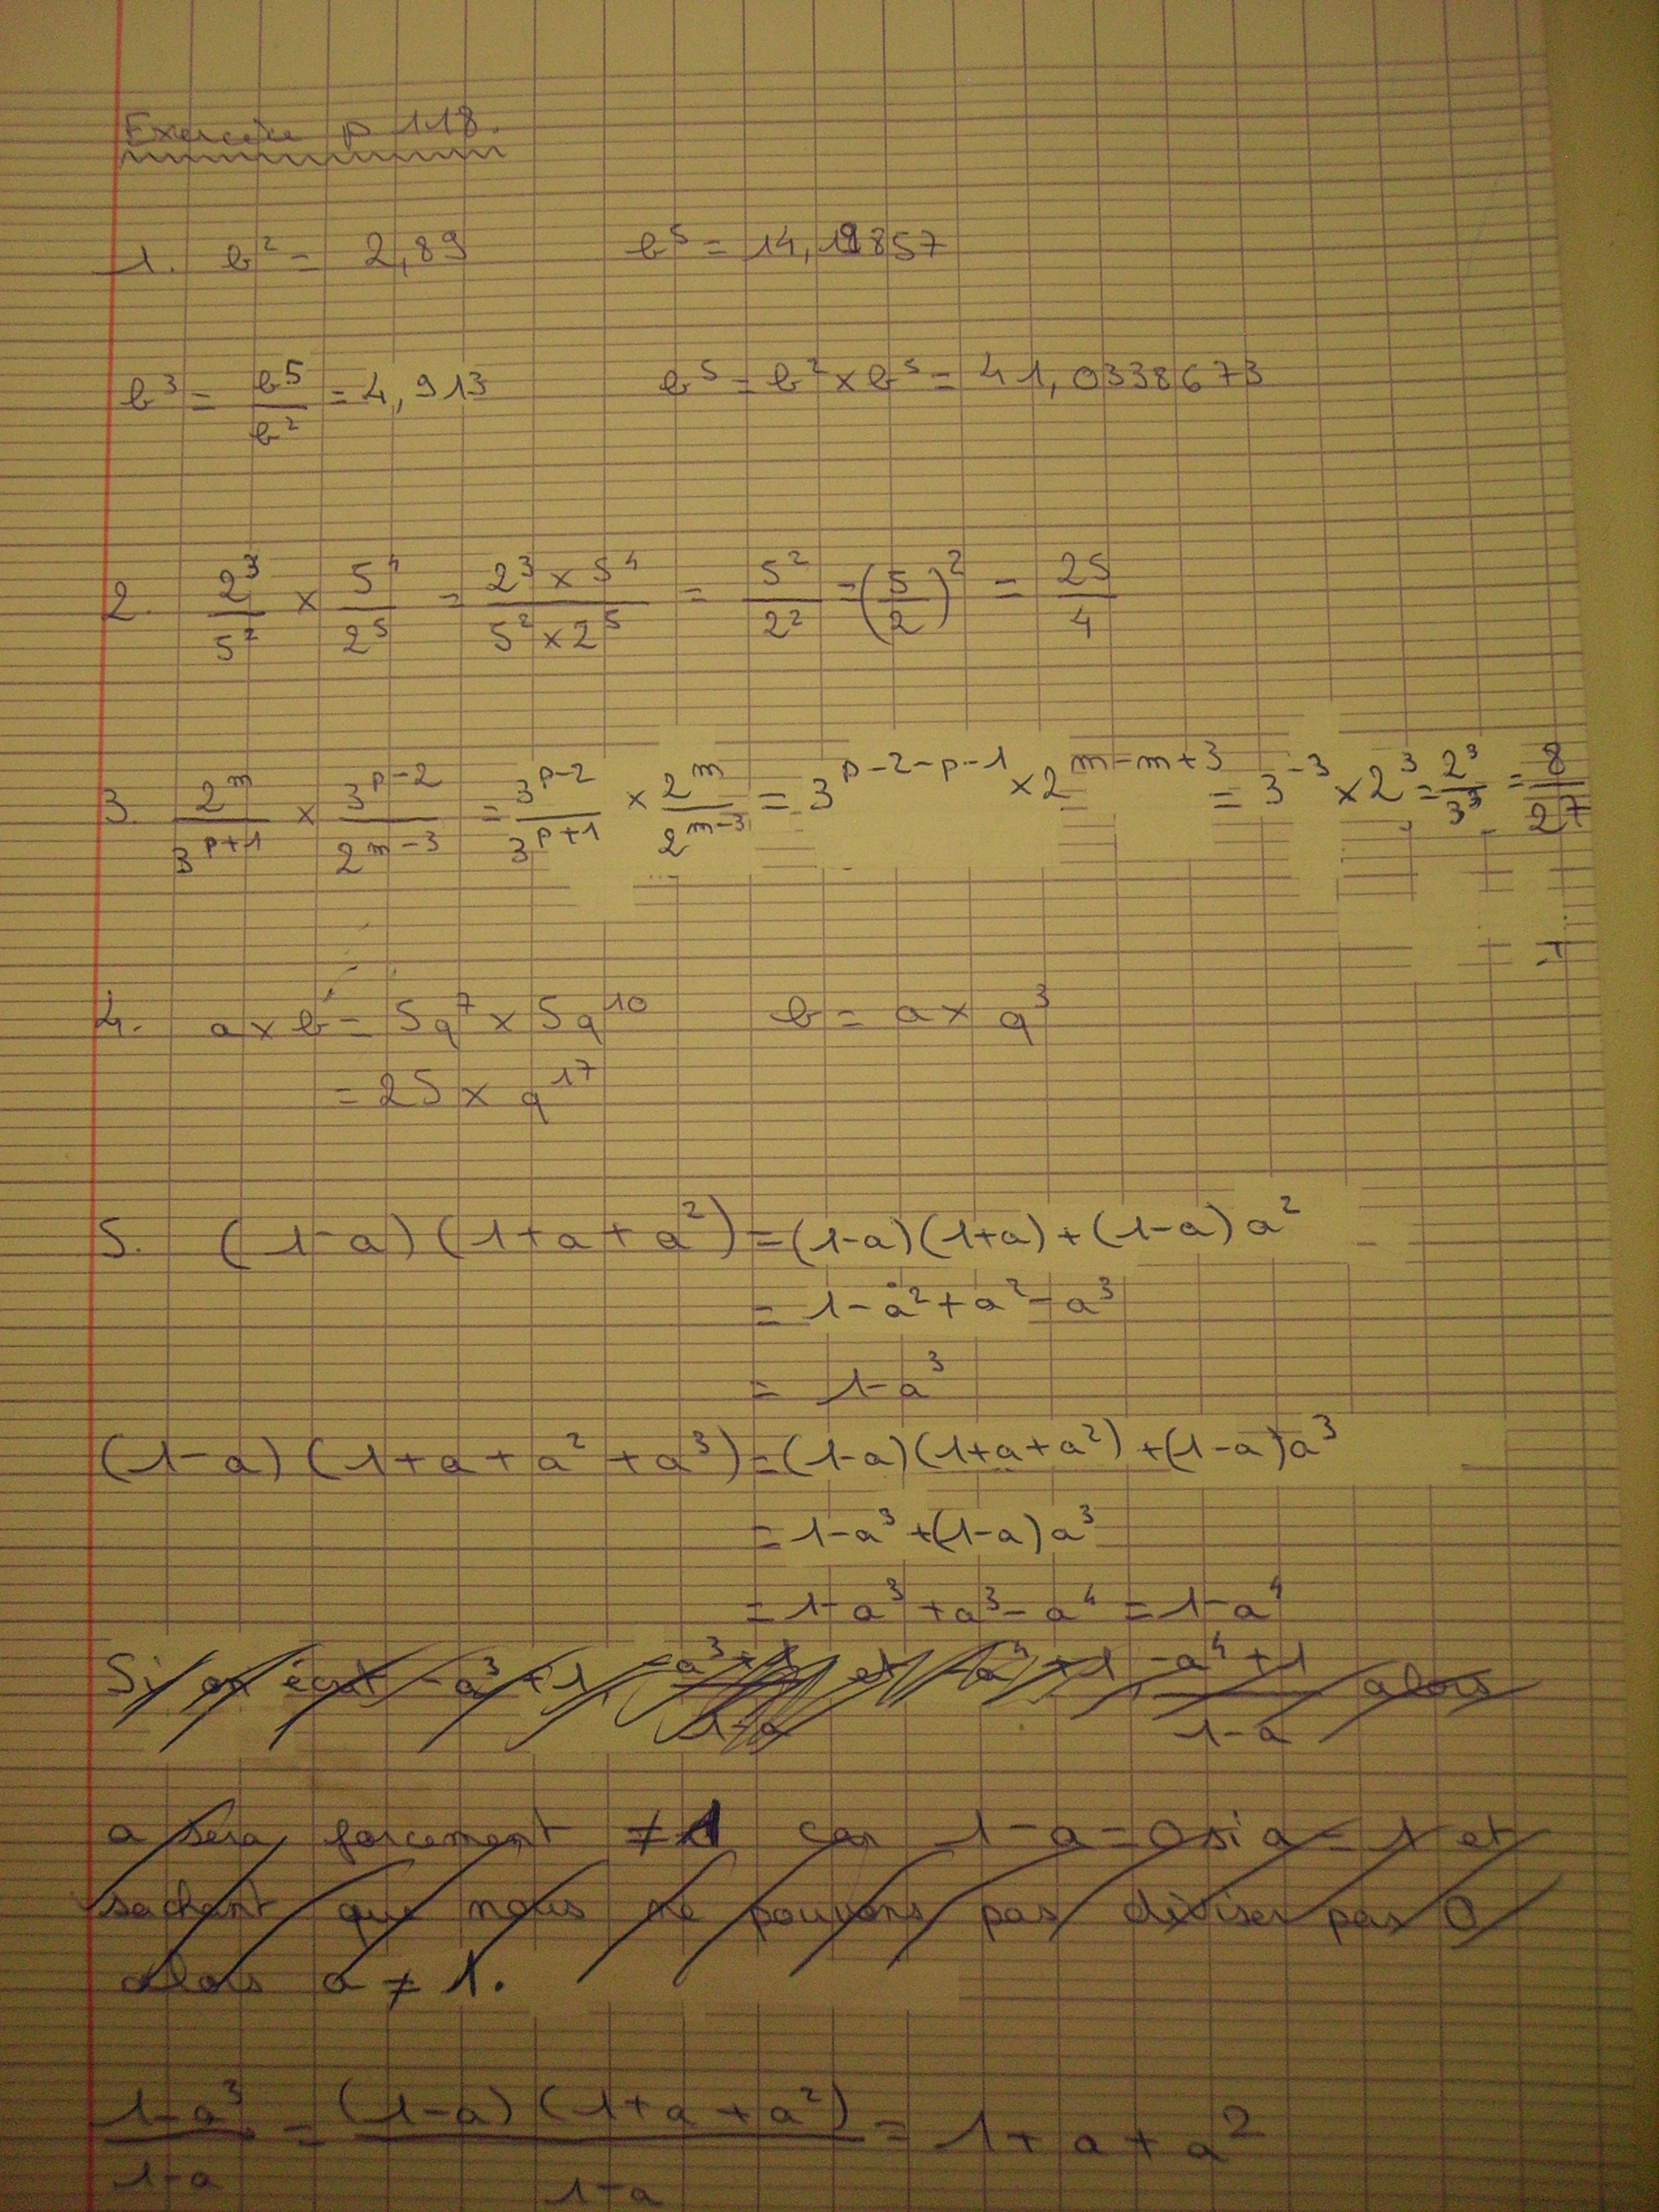 Exercice p 118.
1. b² = 2,89 b⁵ = 14,19857
b³ = b⁵/b² = 4,913 b⁵ = b² × b⁵ = 41,0338673
2. 2³/5² × 5⁴/2⁵ = (2³ × 5⁴)/(5² × 2⁵) = 5²/2² = (5/2)² = 25/4
3. 2^m/3^(p+1) × 3^(p-2)/2^(m-3) = 3^(p-2)/3^(p+1) × 2^m/2^(m-3) = 3^(p-2-p-1) × 2^(m-m+3) = 3⁻³ × 2³ = 2³/3³ = 8/27
4. a × b = 5q⁷ × 5q¹⁰ b = a × q³
= 25 × q¹⁷
5. (1-a)(1+a+a²) = (1-a)(1+a)+(1-a)a²
= 1-a²+a²-a³
= 1-a³
(1-a)(1+a+a²+a³) = (1-a)(1+a+a²)+(1-a)a³
= 1-a³+(1-a)a³
= 1-a³+a³-a⁴ = 1-a⁴
Si on écrit -a³+1, (-a³+1)/(1-a) et -a⁴+1, (-a⁴+1)/(1-a) alors
a sera forcement ≠ 1 car 1-a=0 si a=1 et
sachant que nous ne pouvons pas diviser par 0
alors a ≠ 1.
(1-a³)/(1-a) = ((1-a)(1+a+a²))/(1-a) = 1+a+a²